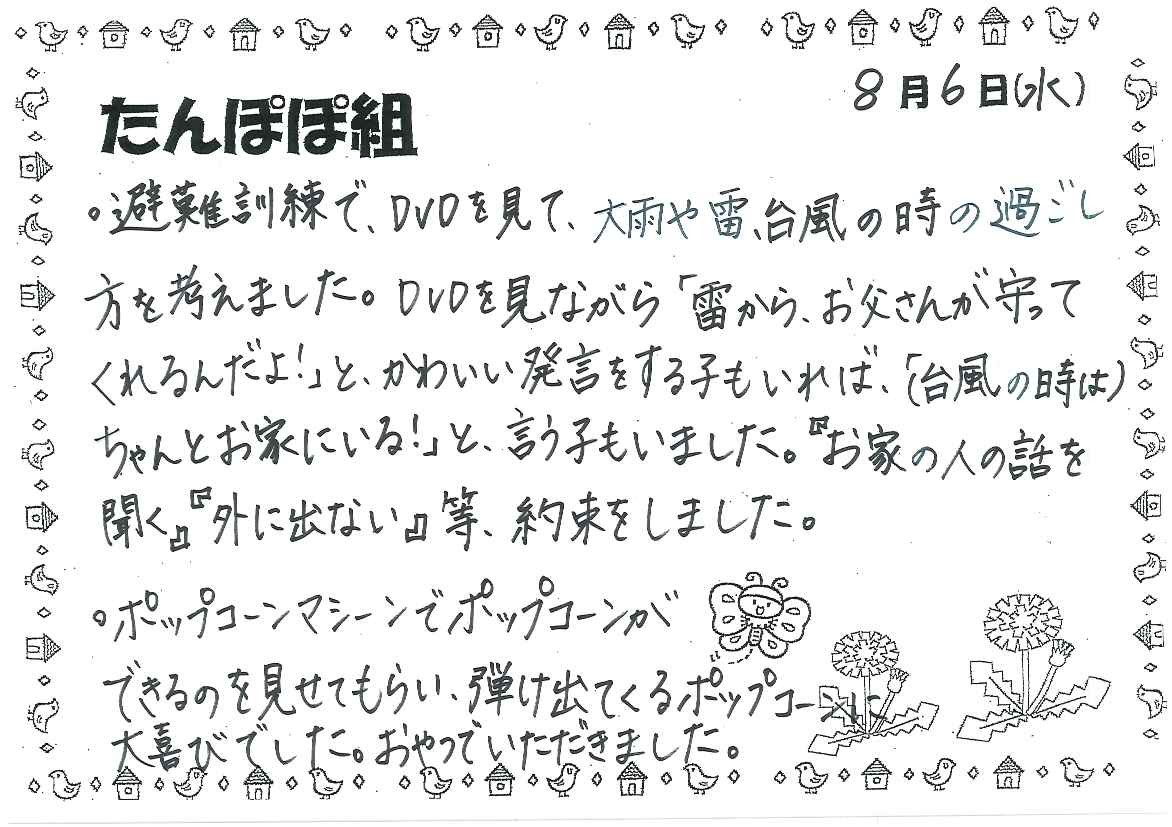 8月6日(水)
たんぽぽ組
。避難訓練で、DVDを見て、大雨や雷、台風の時の過ごし
方を考えました。DVDを見ながら「雷から、お父さんが守って
くれるんだよ!」と、かわいい発言をする子もいれば、「(台風の時は)
ちゃんとお家にいる!」と、言う子もいました。『お家の人の話を
聞く』『外に出ない』等、約束をしました。
。ポップコーンマシーンでポップコーンが
できるのを見せてもらい、弾け出てくるポップコーンに
大喜びでした。おやつでいただきました。